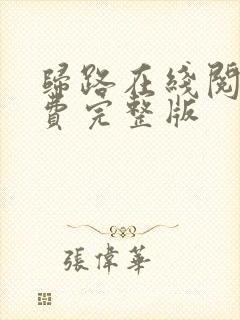 歸路在綫閱
費完整版
張偉華